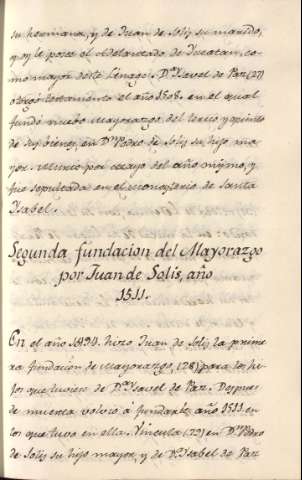 su hermana, y de Juan de Solis su marido,
q. oy le posee el Adelantado de Yucatan, co-
mo mayor deste Linage. Dª Isavel de Paz (27)
otorgó testamento el año 1508. en el qual
fundó nuebo mayorazgo del tercio y quinto
de sus bienes en Dn Pedro de Solis su hijo ma-
yor. Murio por mayo del año mismo, y
fue sepultada en el monasterio de Santa
Ysabel.
Segunda fundacion del Mayorazgo
por Juan de Solis, año
1511.
En el año 1494. hizo Juan de Solis la prime-
ra fundacion de mayorazgo (28) para los hi-
jos que tuviese de Dª Isavel de Paz. Despues
de muerta volvió á fundarle año 1511. en
los que tuvo en ella. Vincula (29) en Dn Pedro
de Solis su hijo mayor, y de Dª Isabel de Paz